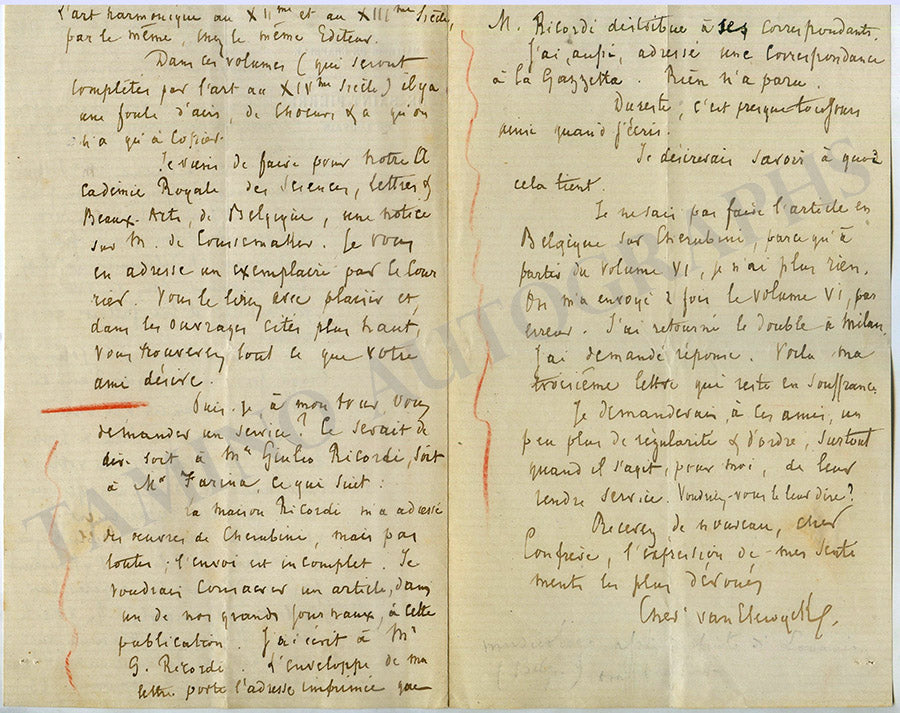 L'art harmonique au XIIme et au XIIIme Siècle,
par le même, chez le même Editeur.
Dans ces volumes (qui seront
complétés par l'art au XIVme Siècle) il y a
une foule d'airs, de Chœurs & a qu'on
n'a qu'à copier.
Je viens de faire pour notre A
cadémie Royale des Sciences, lettres &
Beaux-Arts, de Belgique, une notice
sur M. de Coussemaker. Je vous
en adresse un exemplaire par le cour
rier. Vous le lirez avec plaisir et,
dans les ouvrages cités plus haut,
vous trouverez tout ce que votre
ami désire.
Puis-je à mon tour vous
demander un service? Ce serait de
dire soit à Mr Giulio Ricordi, soit
à Mr Farina, ce qui suit:
La maison Ricordi m'a adressé
des œuvres de Cherubini, mais pas
toutes; l'envoi est incomplet. Je
voudrais consacrer un article, dans
un de nos grands journaux, à cette
publication. J'ai écrit à Mr
G. Ricordi. L'enveloppe de ma
lettre porte l'adresse imprimée que
M. Ricordi distribue à ses correspondants.
J'ai, aussi, adressé une correspondance
à la Gazzetta. Rien n'a paru.
Du reste, c'est presque toujours
ainsi quand j'écris.
Je désirerais savoir à quoi
cela tient.
Je ne sais pas faire l'article en
Belgique sur Cherubini, parce qu'à
partir du volume VI, je n'ai plus rien.
On m'a envoyé 2 fois le volume VI, par
erreur. J'ai retourné le double à Milan.
J'ai demandé réponse. Voilà ma
troisième lettre qui reste en souffrance.
Je demanderais, à ces amis, un
peu plus de régularité & d'ordre, surtout
quand il s'agit, pour moi, de leur
rendre service. Voudriez-vous le leur dire?
Recevez de nouveau, cher
Confrère, l'expression de mes senti
ments les plus dévoués
Cher van Elewyck
TAMINO AUTOGRAPHS